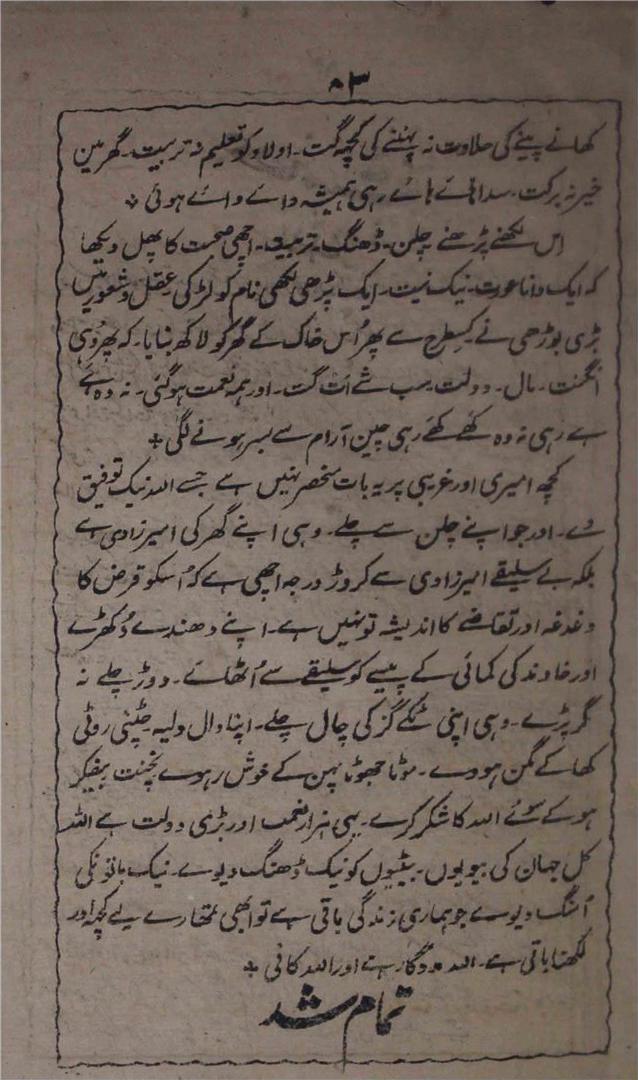 ۸۳
کھانے پینے کی حلاوت نہ پہننے کی کچھ گت۔ اولاد کو تعلیم نہ تربیت۔ گھر مین
خیر نہ برکت۔ سدا ہائے ہائے رہی ہمیشہ وائے وائے ہوئی +
اس لکھنے پڑھنے چلن۔ ڈھنگ۔ تربیت۔ اچھی صحبت کا پھل دیکھا
کہ ایک دانا عورت۔ نیک نیت۔ ایک پڑھی لکھی نام کو لڑکی عقل و شعور میں
بڑی بوڑھی نے کسطرح سے پھر اُس خاک کے گھر کو لاکھ بنایا۔ کہ پھر وُہی
اَنگنت۔ مال۔ دولت سب شے اَت گت۔ اور ہمہ نعمت ہو گئی۔ نہ وہ ہے
ہے رہی نہ وہ کھے کھے رہی چین آرام سے بسر ہونے لگی +
کچھ امیری اور غریبی پر یہ بات منحصر نہیں ہے جسے اللہ نیک توفیق
دے۔ اور جو اپنے چلن سے چلے۔ وہی اپنے گھر کی امیرزادی ہے
بلکہ بے سلیقے امیرزادی سے کروڑ درجہ اچھی ہے کہ اُسکو قرض کا
دغدغہ اور تقاضے کا اندیشہ تو نہیں ہے۔ اپنے دھندے دُکھڑے
اور خاوند کی کمائی کے پیسے کو سلیقے سے اُٹھائے۔ دوڑ چلے نہ
گر پڑے۔ وہی اپنی ٹکے گز کی چال چلے۔ اپنا دال دلیہ چٹنی روٹی
کھا کے مگن ہووے۔ موٹا جھوٹا پہن کے خوش رہوے نچنت بیفکر
ہو کے سوئے اللہ کا شکر کرے۔ یہی ہزار نعمت اور بڑی دولت ہے اللہ
کل جہان کی بیویوں۔ بیٹیوں کو نیک ڈھنگ دیوے۔ نیک باتونکی
اُمنگ دیوے جو ہماری زندگی باقی ہے تو ابھی تمھارے لیے کچھ اور
لکھنا باقی ہے۔ اللہ مددگار ہے اور اللہ کافی +
تمام شد